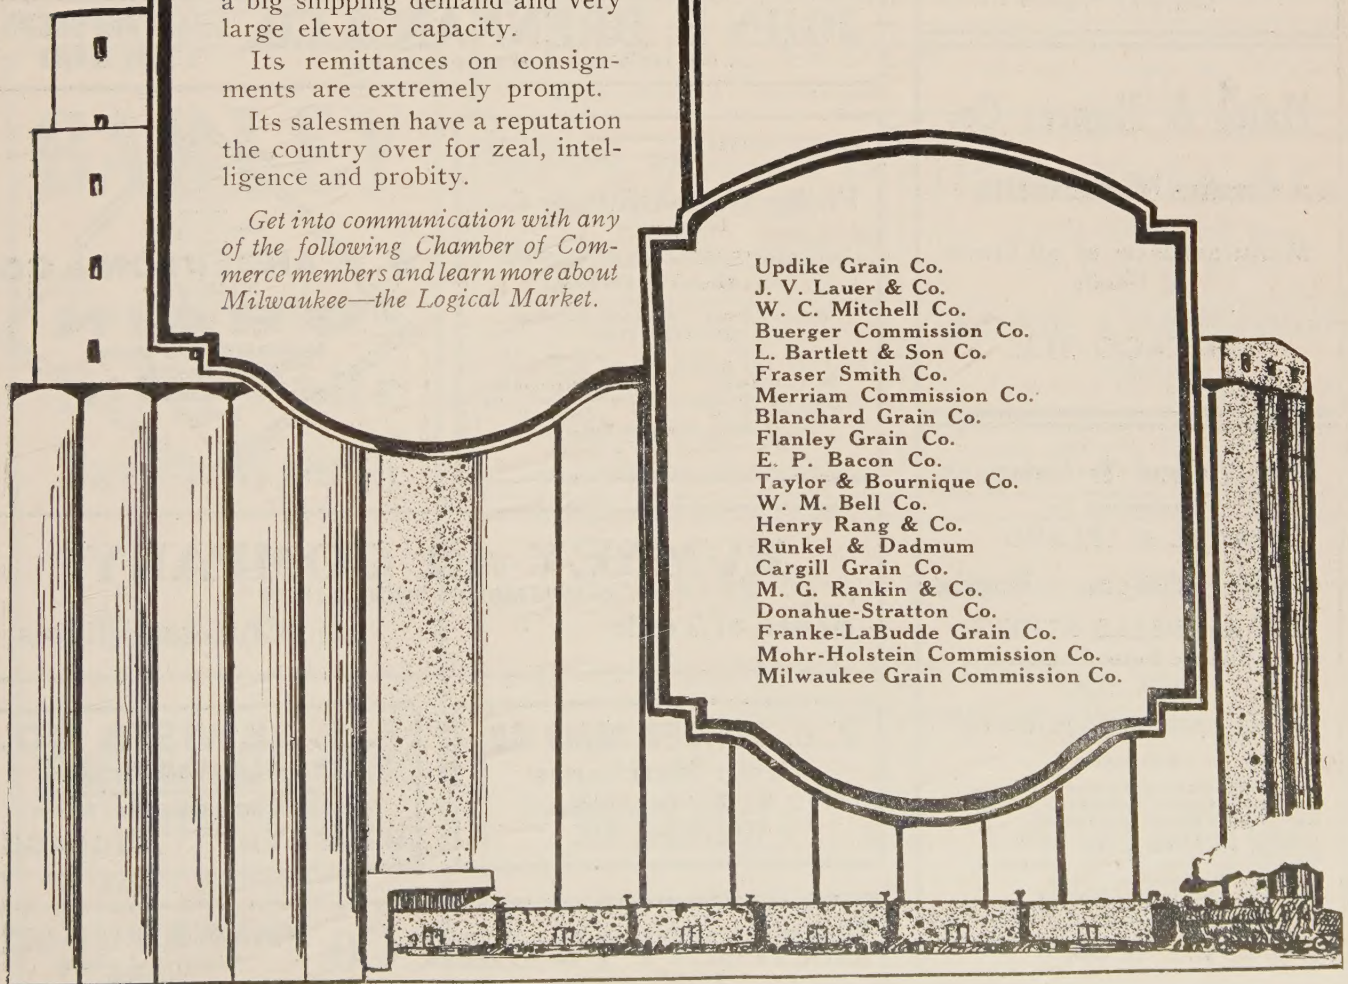 a big shipping demand and very
large elevator capacity.
Its remittances on consign-
ments are extremely prompt.
Its salesmen have a reputation
the country over for zeal, intel-
ligence and probity.
Get into communication with any
of the following Chamber of Com-
merce members and learn more about
Milwaukee—the Logical Market.
Updike Grain Co.
J. V. Lauer & Co.
W. C. Mitchell Co.
Buerger Commission Co.
L. Bartlett & Son Co.
Fraser Smith Co.
Merriam Commission Co.
Blanchard Grain Co.
Flanley Grain Co.
E. P. Bacon Co.
Taylor & Bournique Co.
W. M. Bell Co.
Henry Rang & Co.
Runkel & Dadmum
Cargill Grain Co.
M. G. Rankin & Co.
Donahue-Stratton Co.
Franke-LaBudde Grain Co.
Mohr-Holstein Commission Co.
Milwaukee Grain Commission Co.